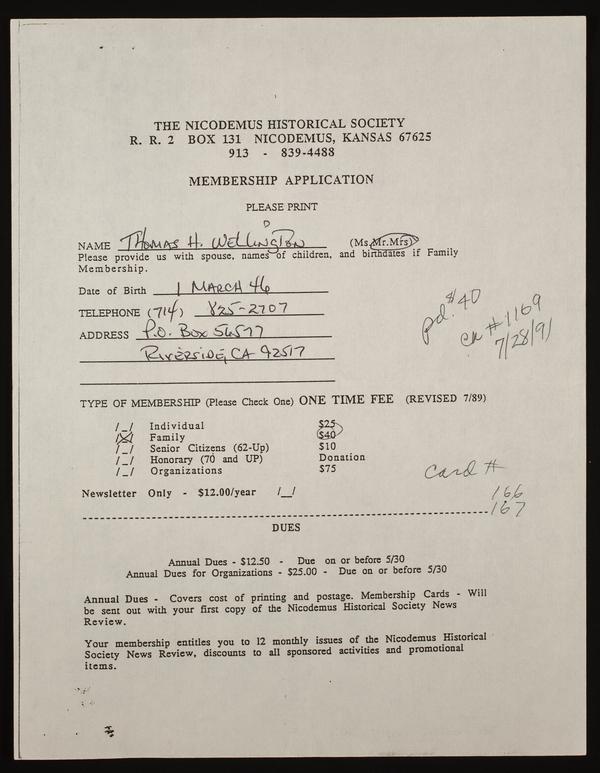 THE NICODEMUS HISTORICAL SOCIETY
R. R. 2 BOX 131 NICODEMUS, KANSAS 67625
913 - 839-4488
MEMBERSHIP APPLICATION
PLEASE PRINT
NAME THOMAS H. WELLINGTON (Ms.Mr.Mrs)
Please provide us with spouse, names of children, and birthdates if Family
Membership.
Date of Birth 1 MARCH 46
TELEPHONE (714) 825-2707
ADDRESS P.O. BOX 56577
RIVERSIDE, CA 92517
pd. $40
ck #1169
7/28/91
TYPE OF MEMBERSHIP (Please Check One) ONE TIME FEE (REVISED 7/89)
/_/ Individual $25
/X/ Family $40
/_/ Senior Citizens (62-Up) $10
/_/ Honorary (70 and UP) Donation
/_/ Organizations $75
Card #
166
167
Newsletter Only - $12.00/year /_/
DUES
Annual Dues - $12.50 - Due on or before 5/30
Annual Dues for Organizations - $25.00 - Due on or before 5/30
Annual Dues - Covers cost of printing and postage. Membership Cards - Will
be sent out with your first copy of the Nicodemus Historical Society News
Review.
Your membership entitles you to 12 monthly issues of the Nicodemus Historical
Society News Review, discounts to all sponsored activities and promotional
items.